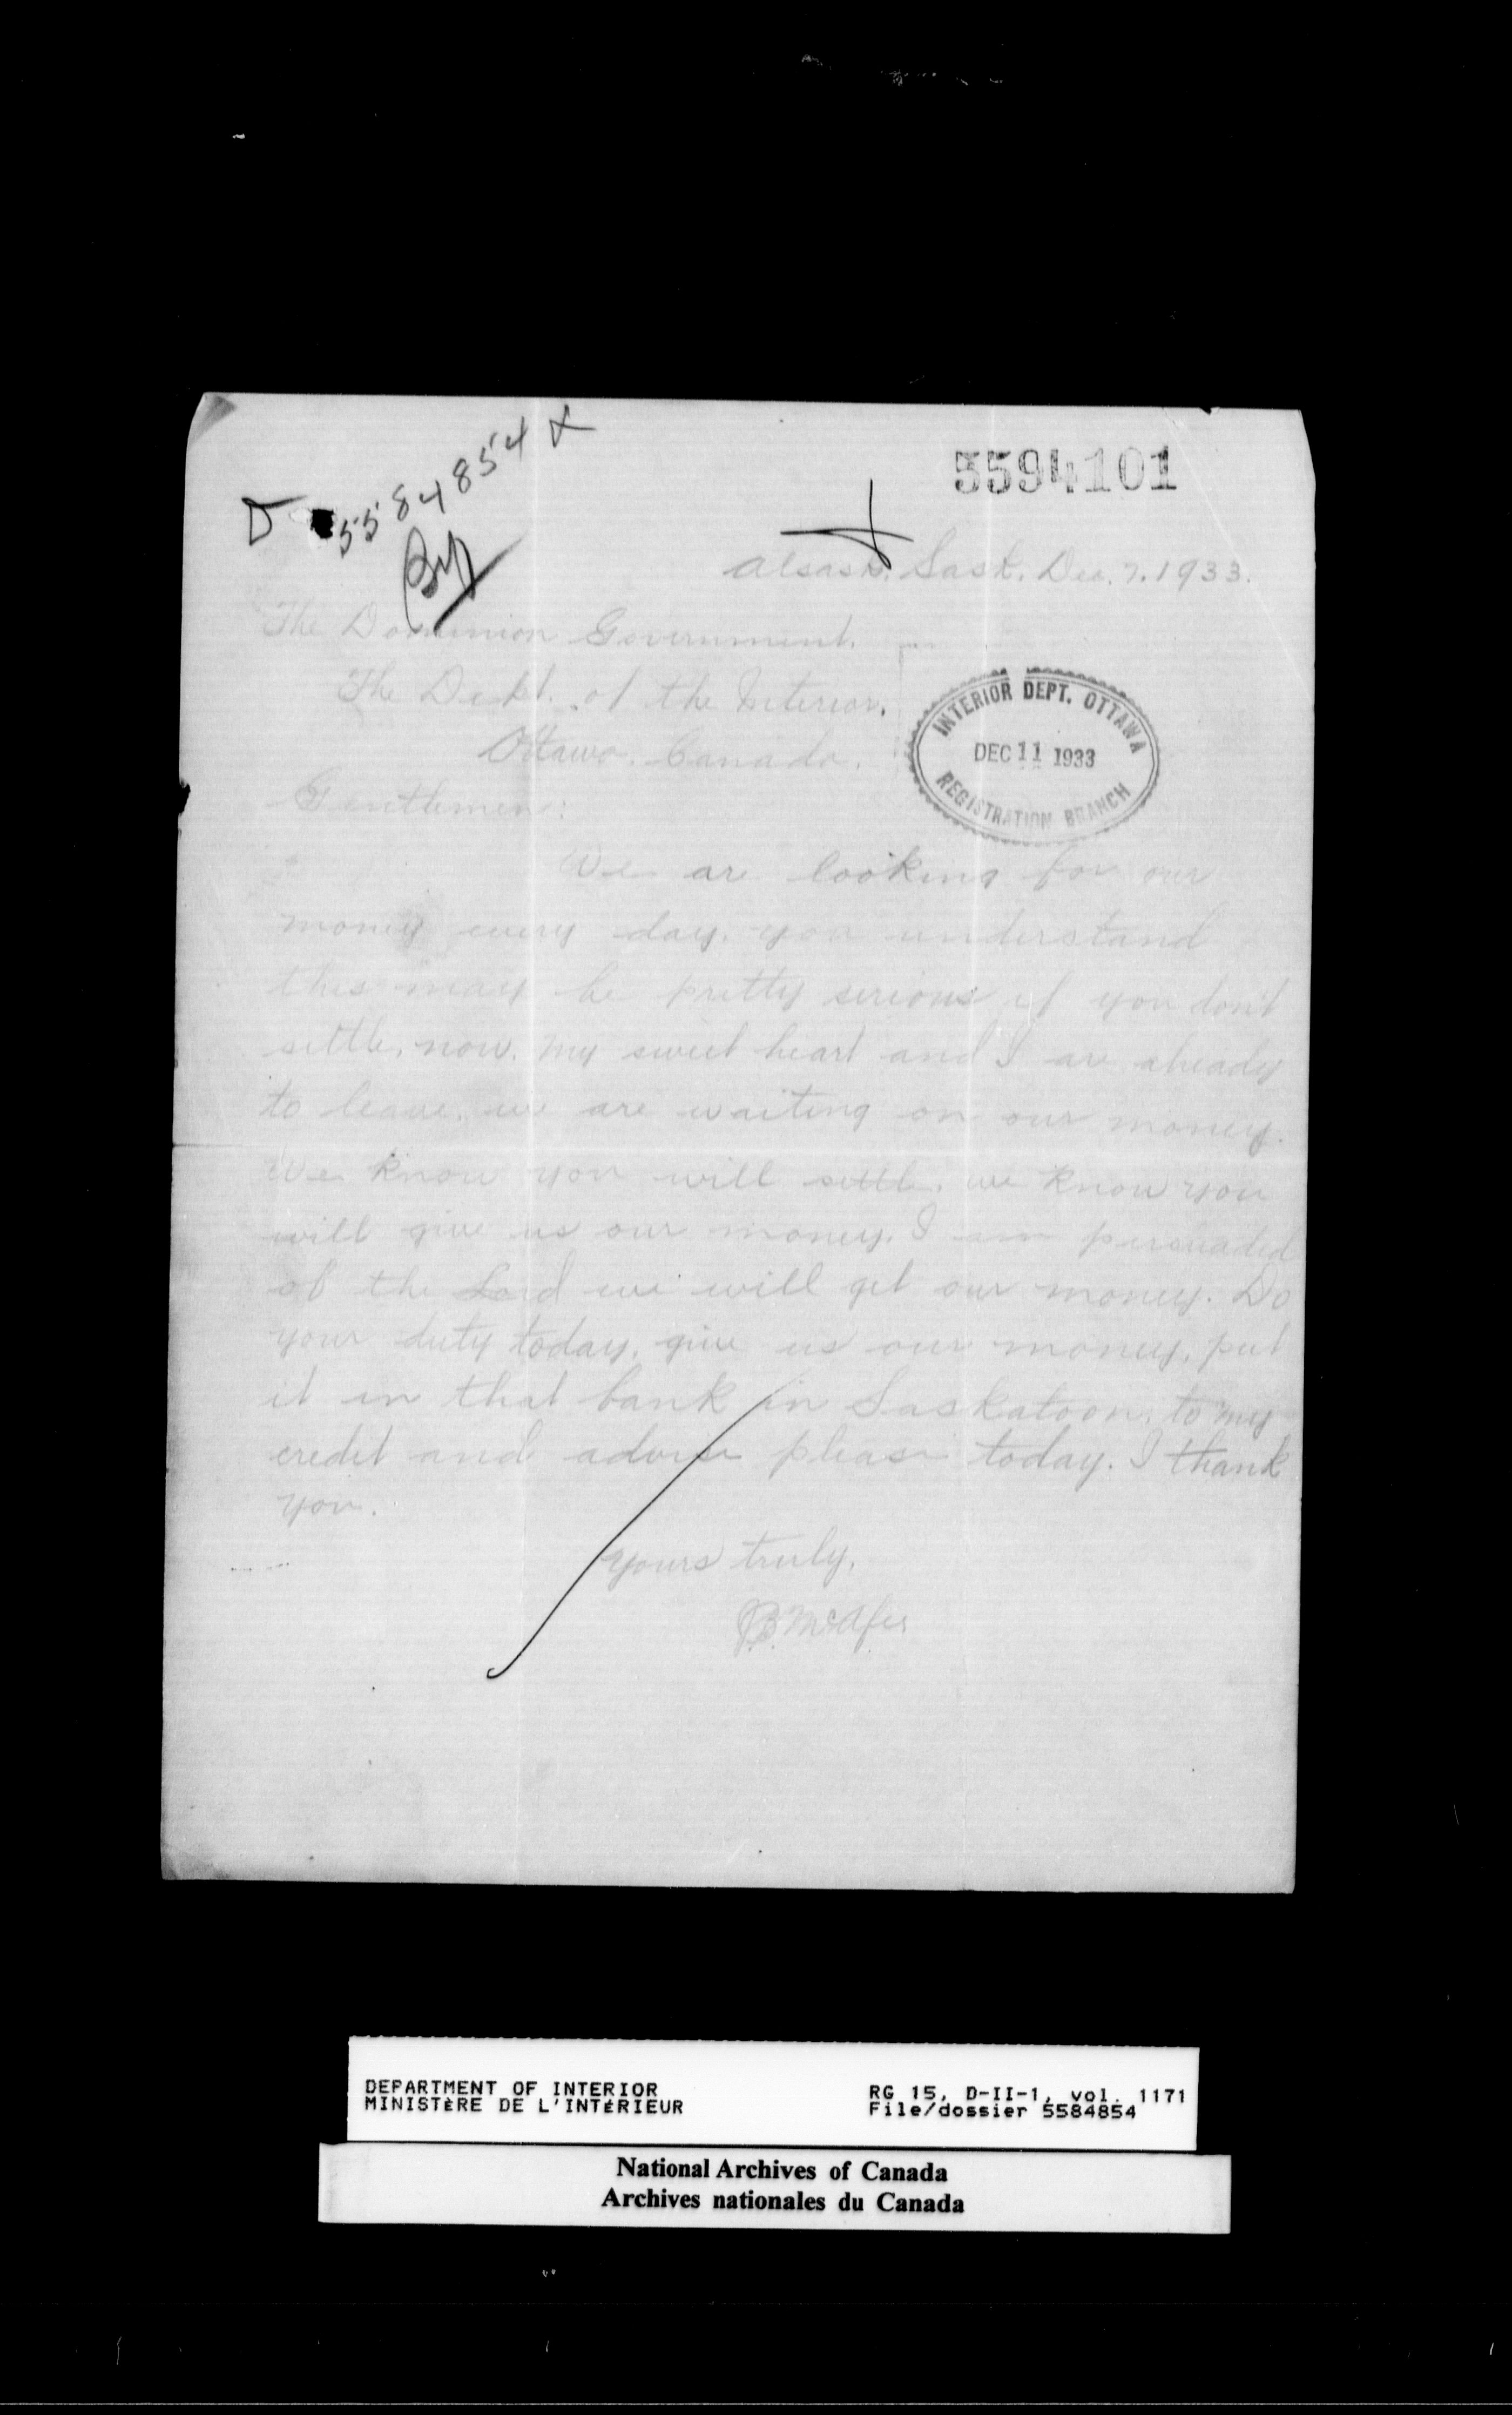 D 5584854 &
5594101
Alsask, Sask. Dec. 7. 1933.
The Dominion Government.
The Dept. of the Interior.
Ottawa. Canada.
INTERIOR DEPT. OTTAWA
DEC 11 1933
REGISTRATION BRANCH
Gentlemen:
We are looking for our
money every day. you understand
this may be pretty serious if you don't
settle. now. my sweet heart and I are already
to leave. we are waiting on our money.
We know you will settle. we know you
will give us our money. I am persuaded
of the Lord we will get our money. Do
your duty today. give us our money. put
it in that bank in Saskatoon. to my
credit and advise please today. I thank
you.
yours truly.
J.B. McAfee
DEPARTMENT OF INTERIOR
MINISTÈRE DE L'INTÉRIEUR
RG 15, D-II-1, vol. 1171
File/dossier 5584854
National Archives of Canada
Archives nationales du Canada